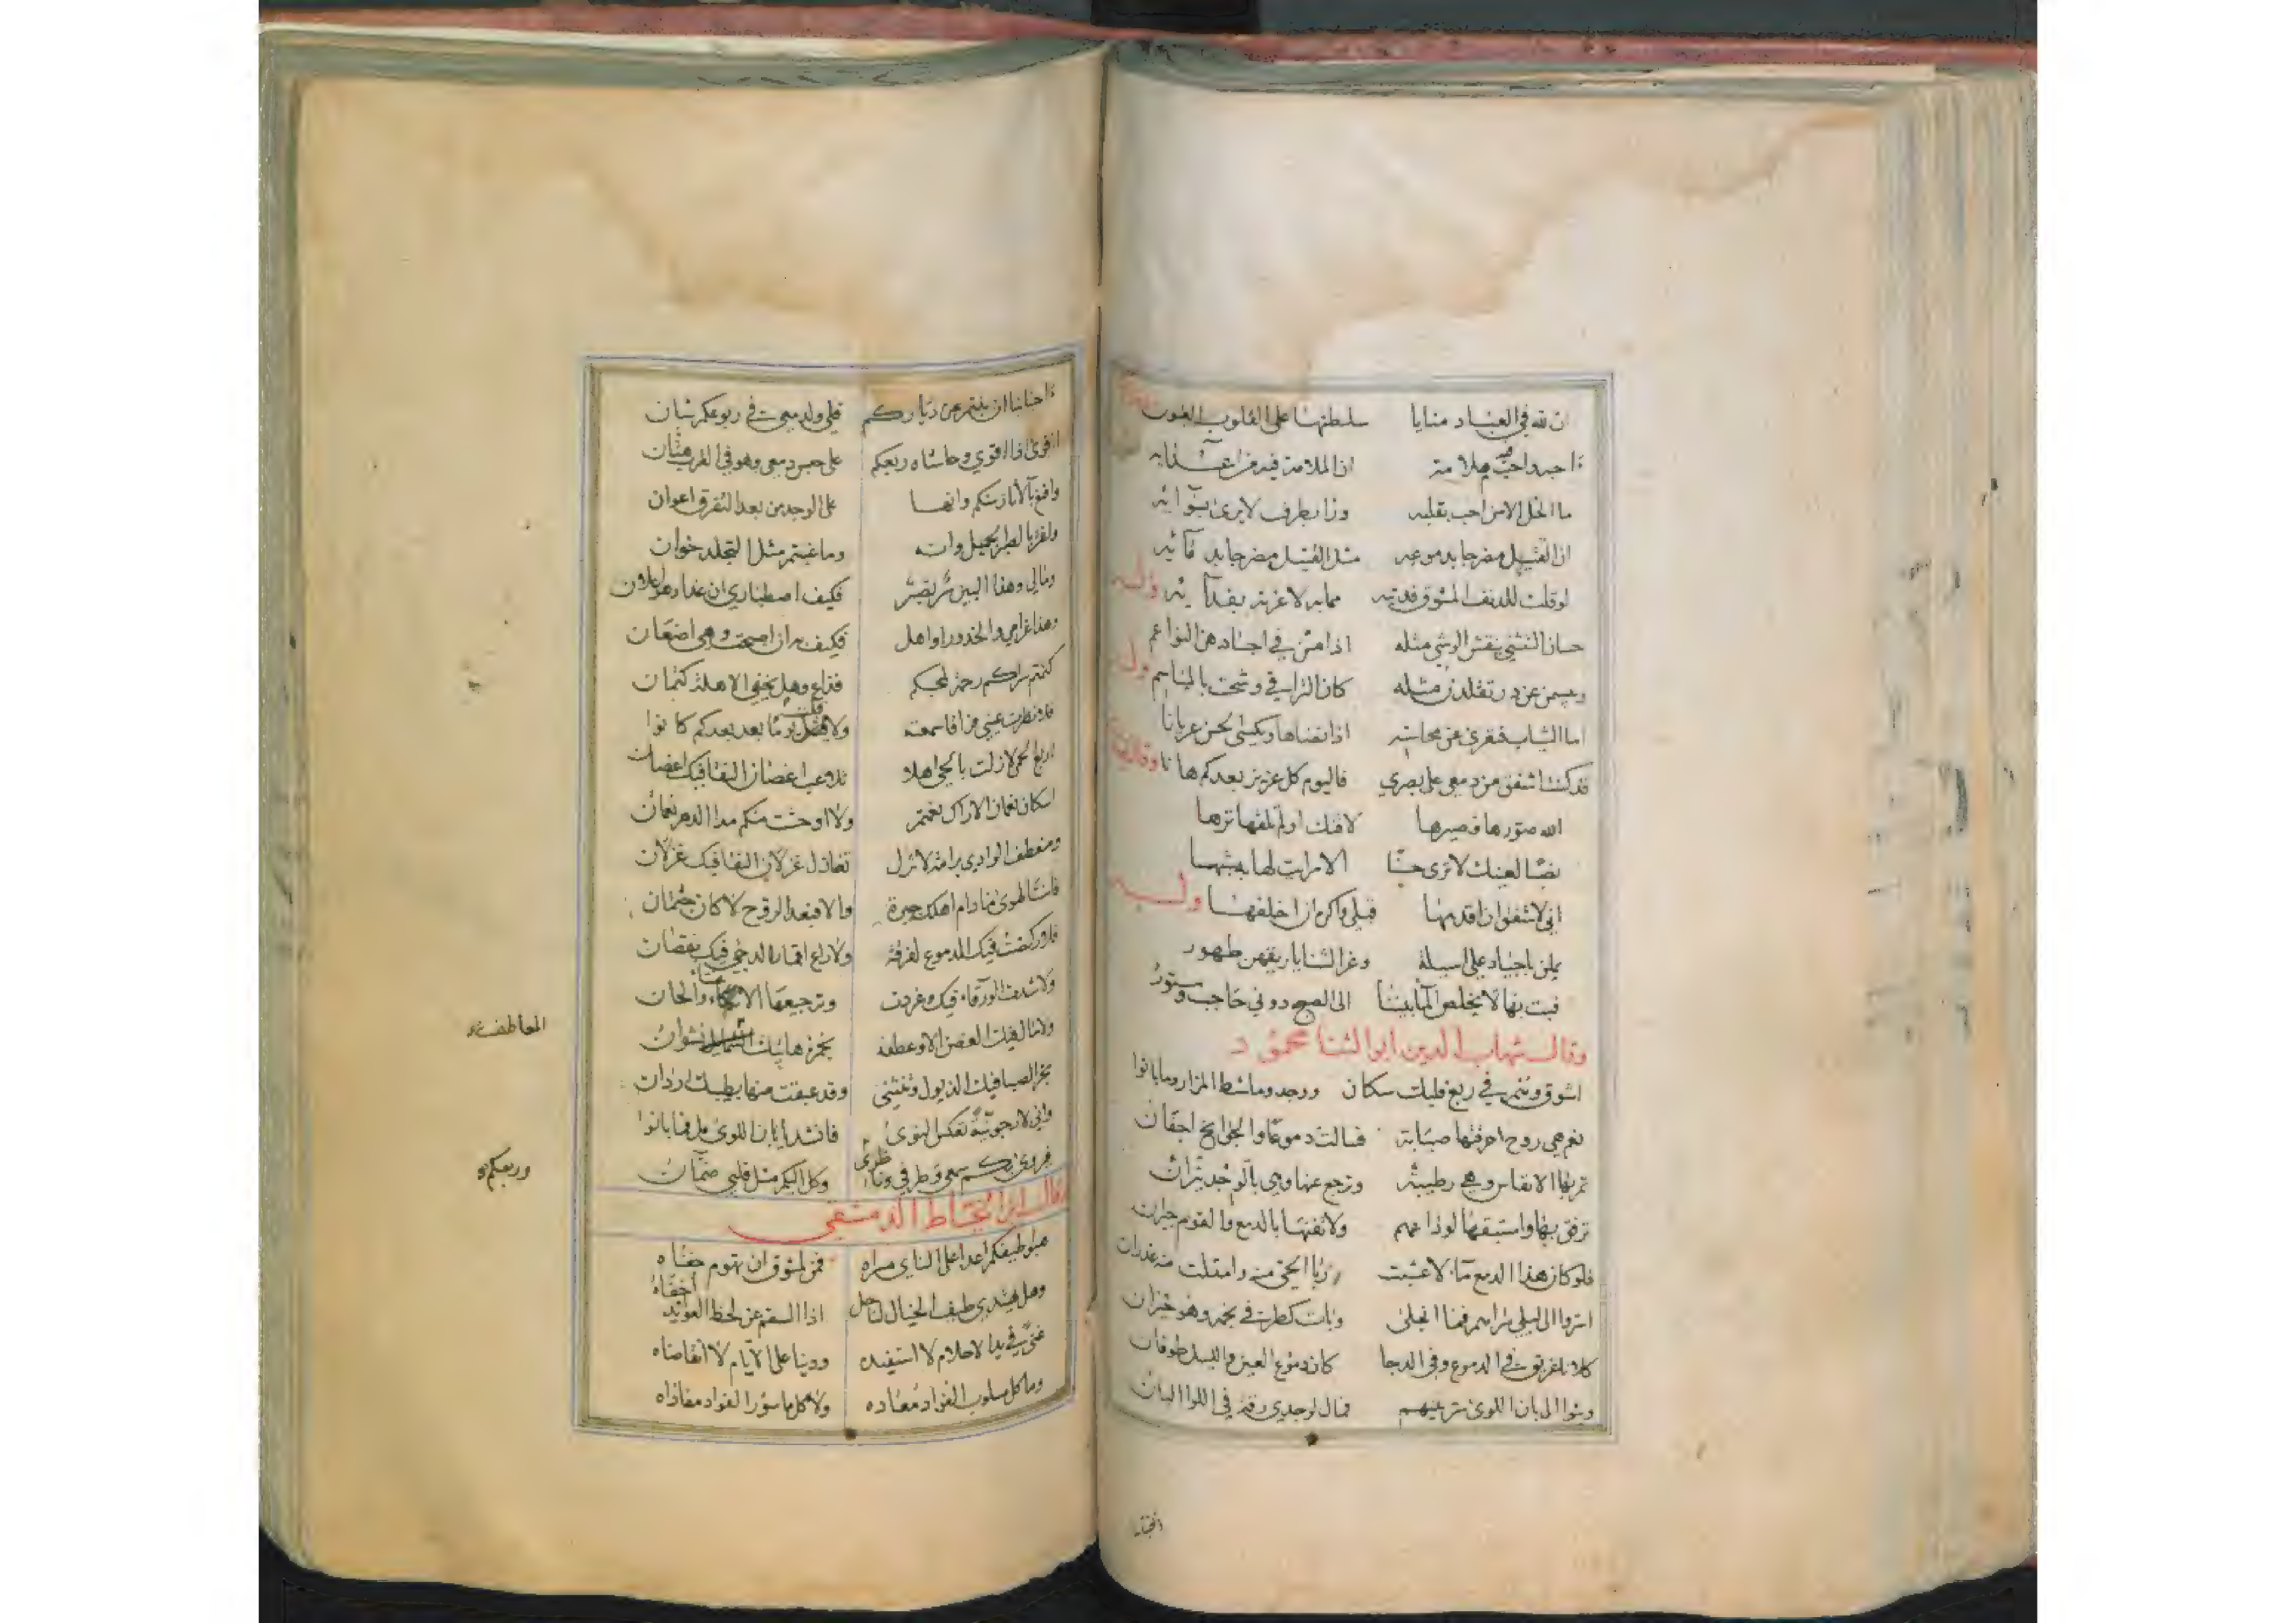 ان لله في العباد منايا سلطتها على القلوب العيون
أحبه واحب فيه ملامة ان الملامة فيه من اعدائه
ما الخل الا من احب بقلبه وذا بطرف لا يرى بسوائه
ان القتيل مضرجا بدموعه مثل القتيل مضرجا بدمائه
لو قلت للدنف المشوق فديته مما به لاغرته بفدائه وله
حسان التثني ينقش الوشي مثله اذا مسن في اجسادهن النواعم
ويبسمن عن در تقلدن مثله كان التراقي وشحت بالمباسم وله
اما الثياب فتعرى عن محاسنه اذا نضاها ويكسى الحسن عريانا
قد كنت اشفق من دمعي على بصري فاليوم كل عزيز بعدكم هانا وقال
الله صورها فصيرها لاقتك او لم تلقها ترها
نصبا لعينك لا ترى حسنا الا رايت لها به شبها
اني لاشفق ان اقدمها قبلي واكره ان اخلفها وله
يملن باجياد علي اسيلة وغر الثنايا ريقهن طهور
فبت بها لا يخلص الماء بيننا الى الصبح دوني حاجب وستور
وقال شهاب الدين ابو الثنا محمود
اشوق وانتم في ربع قلبك سكان ووجد وما شط المزار وما بانوا
نعم هي روح احرقتها صبابة فسالت دموعا والجوانح اجفان
تمر بها الانفاس وهي رطيبة وترجع عنها وهي بالوجد نيران
ترفق بها واستبقها لوداعهم ولا تفنها بالدمع والقوم جيران
فلو كان هذا الدمع ماء لاعشبت ربا الحي منه وامتلت منه غدران
اسروا الى ليلي سراهم فما انجلى وبات كطرفي نجمه وهو حيران
كلانا غريق في الدموع وفي الدجا كان دموع العين والليل طوفان
وبثوا الى بان اللوى سر بينهم فمال لوجدي رقة في اللوا البان
احبا
أحبابنا ان بنتم عن دياركم قلبي ولدمعي في ربوعكم شان
على حبس دمعي وهو في القرب هتان
على الوجد من بعد التفرق اعوان
وما غبتم مثل التجلد خوان
وما لي وهذا البين تصبر فكيف اصطباري ان غدا وهو
وهذا غرامي والخدور اواهل فكيف ان اصبحت وهي اضعان
كتمتم سراكم رحمة لمحبكم فذاع وهل يخفى الاهلة كتمان
فلا نظرت عيني ولا بعد بعدكم كانوا
اربع الحمى لا زلت بالحي اهلا تلاعب اغصان النقا فيك اغصان
اسكان نعمان الاراك نعمتم ولا اوحشت منكم مدا الدهر نعمان
ومنعطف الوادي برامة لا تزل تغازل غزلان النقا فيك غزلان
فانت الهوى ما دام اهلك جيرة والا فبعد الروح لا كان جثمان
فلا ركضت فيك الدموع لفرقة ولا راع اقمار الدجى فيك نقصان
ولا شدت الورقاء فيك وغردت وترجيعها الا والحان
ولا مال فيك الغصن الا وعطفه بخمر هاتيك الشمايل نشوان
المعاطف
يجر الصبا فيك الذيول وتنثني وقد عبقت منها بطيبك اردان
واني لارجو نية تعكس النوى فانشد ايا بان اللوى هل فنا بانوا
سمعي وطرفي وكل اليكم مثل قلبي ضمآن
وربعكم
وقال ابن الخياط الدمشقي
هبوا طيفكم اعدا على الناي مسراه فمن لمشوق ان تهوم جفناه
وهل يهتدي طيف الخيال لناحل اذا السقم عن لحظ العوائد اخفاه
غنى في يد الاحلام لا استفيده ودينا على الايام لا اتقاضاه
وما كل مسلوب الفواد معاده ولا كل ماسور الفواد مفاداه